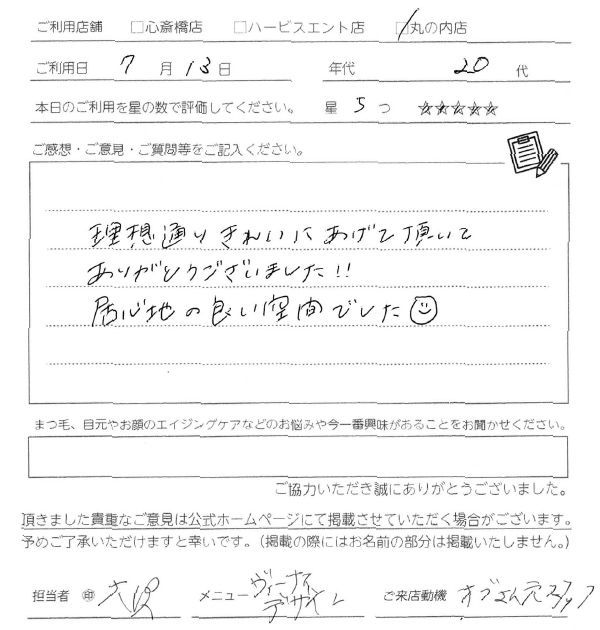 ご利用店舗 □心斎橋店 □ハービスエント店 □丸の内店
ご利用日 7月13日 年代 20代
本日のご利用を星の数で評価してください。 星 5つ ☆☆☆☆☆
ご感想・ご意見・ご質問等をご記入ください。
理想通りきれいにあげて頂いて
ありがとうございました!!
居心地の良い空間でした
まつ毛、目元やお顔のエイジングケアなどのお悩みや今一番興味があることをお聞かせください。
ご協力いただき誠にありがとうございました。
頂きました貴重なご意見は公式ホームページにて掲載させていただく場合がございます。
予めご了承いただけますと幸いです。(掲載の際にはお名前の部分は掲載いたしません。)
担当者 印 メニュー ヴィーナスデザイン ご来店動機